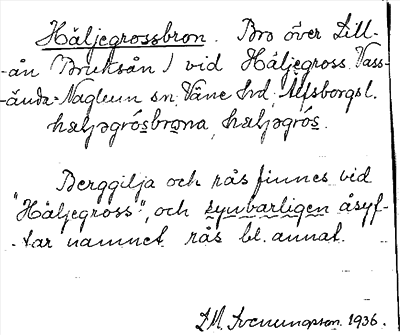 Häljegrossbron. Bro över Lill-
ån (Bruksån) vid Häljegross, Vass-
-ända-Naglum sn, Väne hd, Älfsborgs l.
hæljəgrósbrona, hæljəgrós.
Berggilja och rås finnes vid
"Häljegross", och synbarligen åsyf-
-tar namnet rås bl. annat.
Svenungsson 1936.